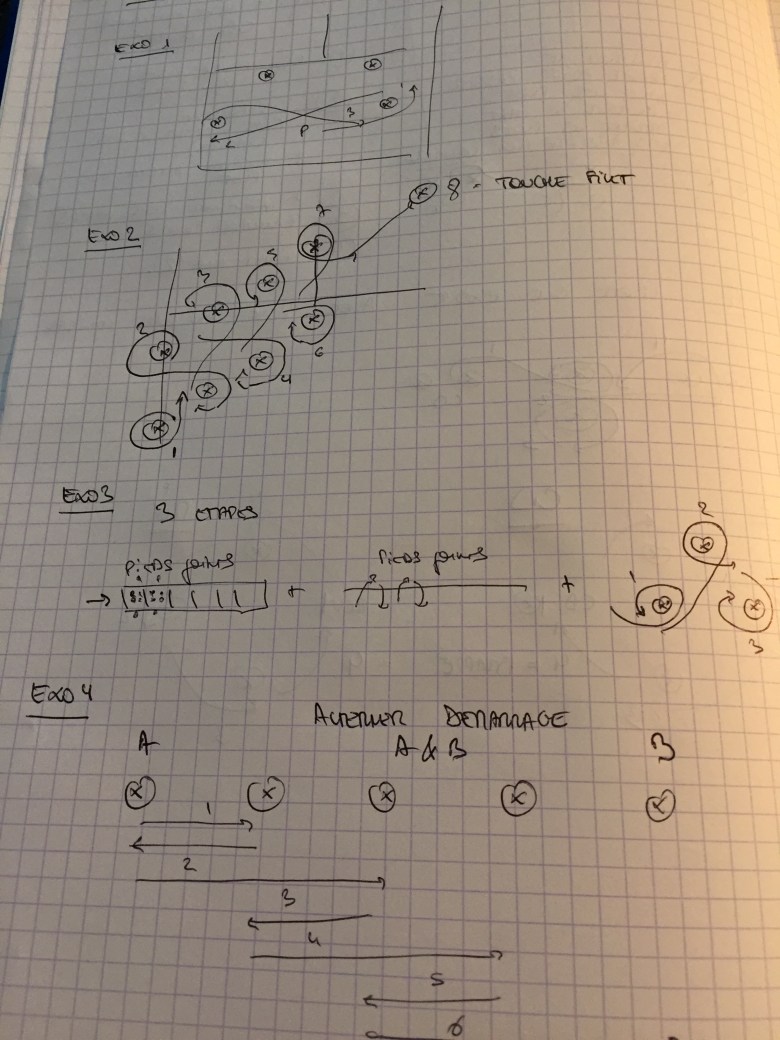 EXO 1
1
3
P
2
8 - TOUCHE FILET
EXO 2
7
5
3
2
6
4
1
EXO3
3 ETAPES
PIEDS joints
PIEDS joints
+
+
2
1
3
EXO 4
ALTERNER DEMARRAGE
A
A & B
B
1
2
3
4
5
6